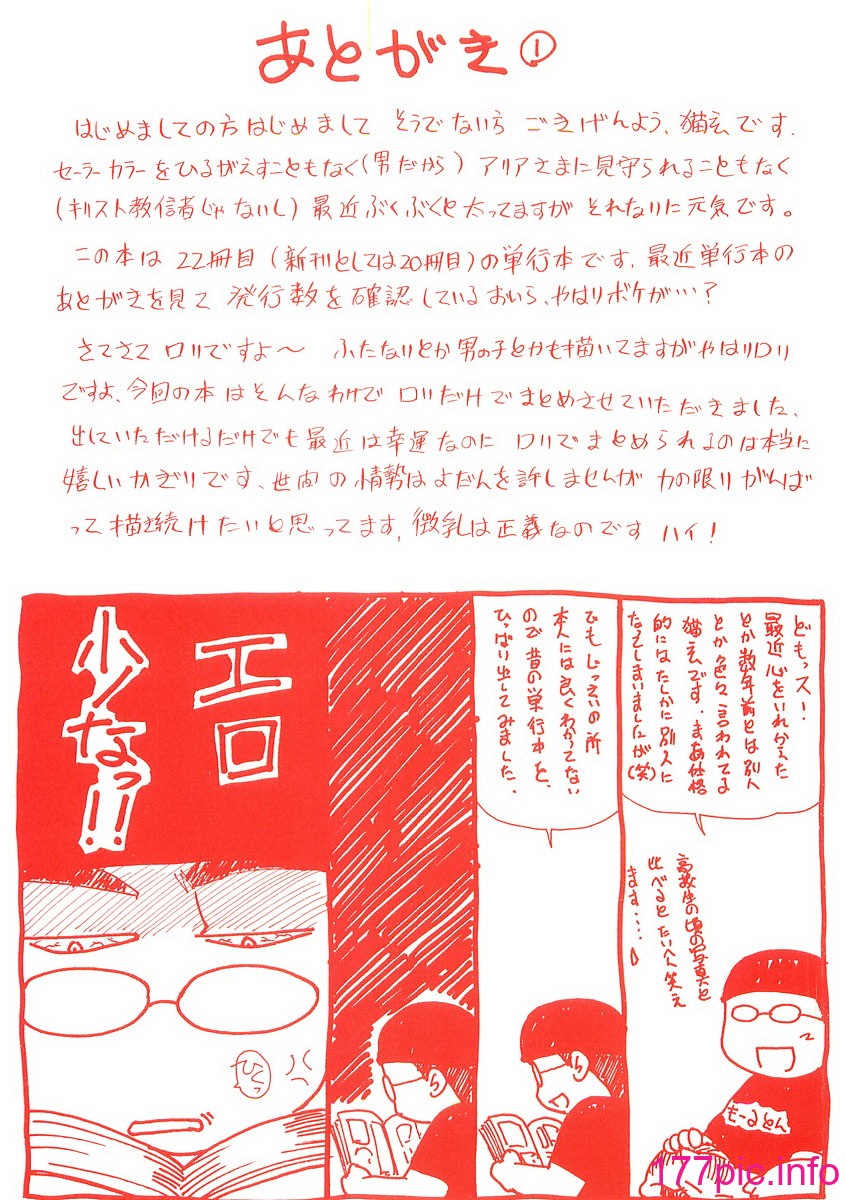 あとがき①
はじめましての方はじめまして そうでない方 ごきげんよう、猫玄です。
セーラーカラーをひるがえすこともなく(男だから) アリアさまに見守られることもなく
(キリスト教信者じゃないし) 最近ぶくぶくと太ってますが それなりに元気です。
この本は22冊目(新刊としては20冊目)の単行本です、最近単行本の
あとがきを見て 発行数を確認しているおいら、やはりボケが…?
さてさて ロリですよ〜 ふたなりとか男の子とかも描いてますがやはりロリ
ですよ、今回の本はそんなわけで ロリだけでまとめさせていただきました、
出していただけるだけでも最近は幸運なのに ロリでまとめられるのは本当に
嬉しいかぎりです、世間の情勢はよだんを許しませんが 力の限りがんば
って描き続けたいと思ってます、微乳は正義なのです ハイ!
どもっス!
最近心をいれかえた
とか数年前とは別人
とか色々言われてる
猫玄です。まあ体格
的にはたしかに別人に
なってしまいましたが(笑)
高校生の頃の写真と
比べると たいへん笑え
ます…
もーるとん
でも じっさいの所
本人には良くわかってない
ので昔の単行本を、
ひっぱり出してみました、
エロ
少なっ!!
ひくっ
177pic.info